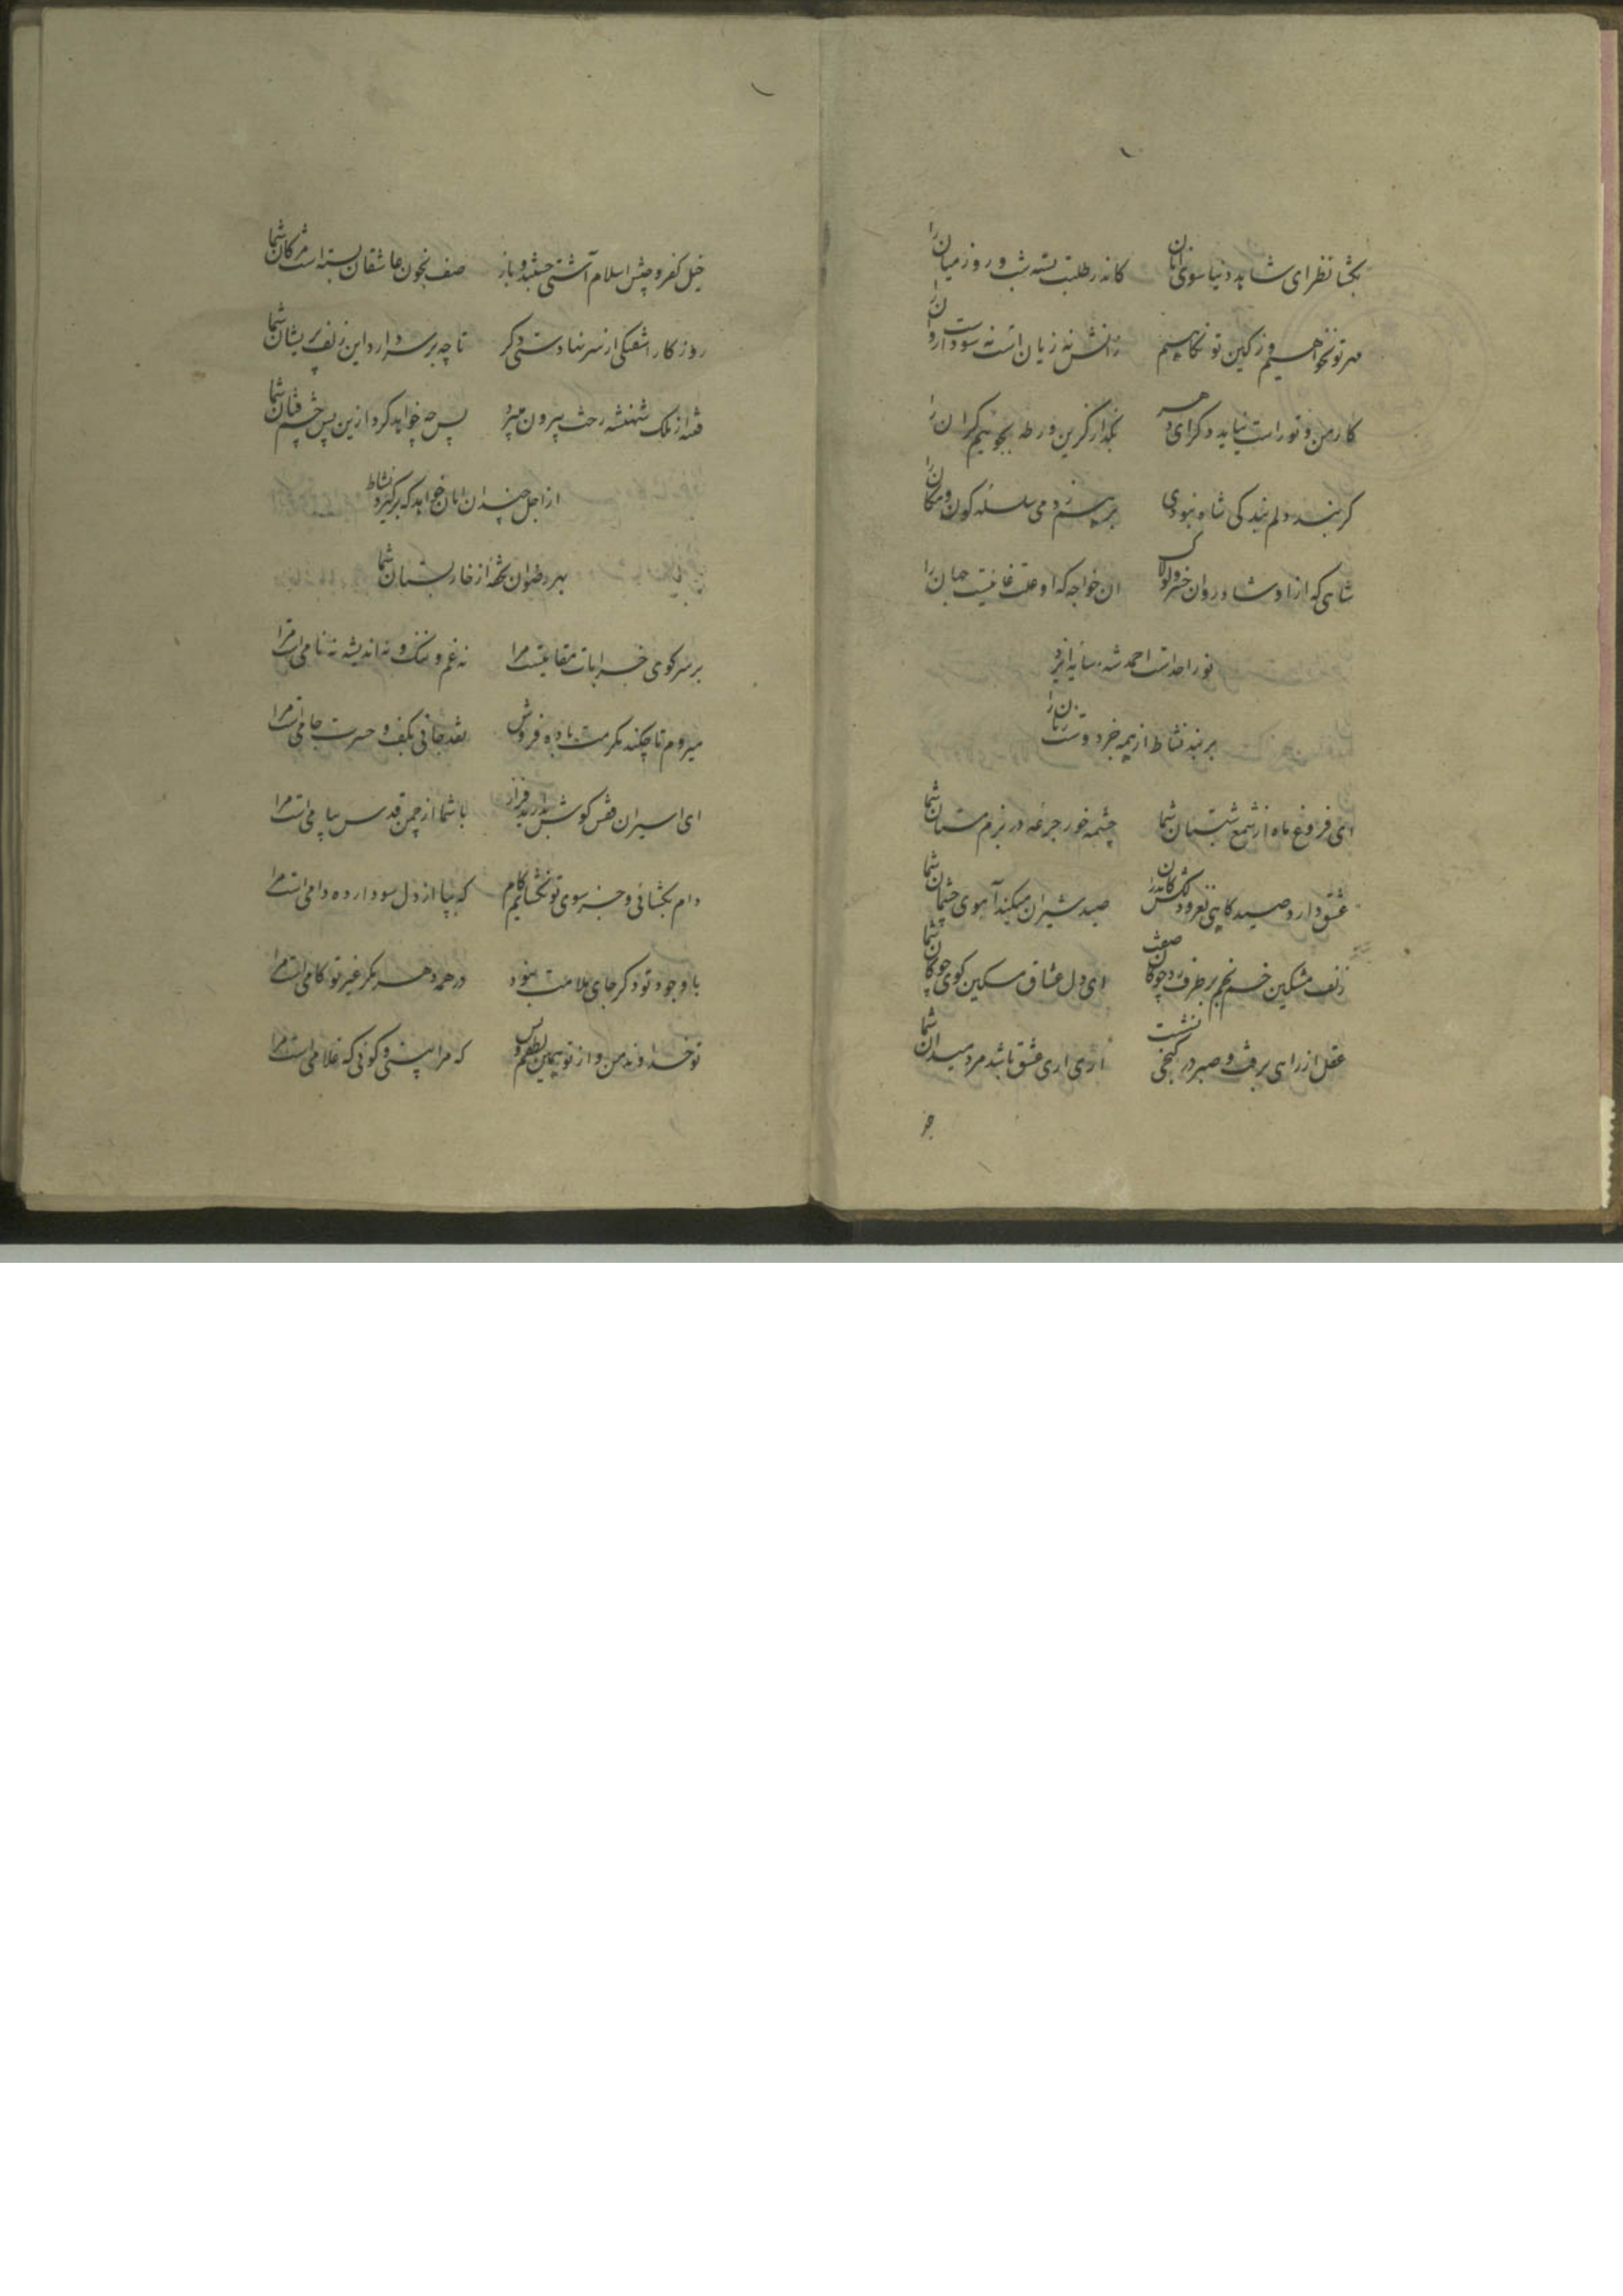 بگشا نظر ای شاهد دنیا سوی آنان کاندر طلبت بسته شب و روز میان را
مهر تو نخواهیم و ز کین تو نکاهیم نه زیان است نه سود است
کار من و تو راست نیاید دگر ای دهر بگذار کزین ورطه بجوئیم کران را
گر بند دلم بندگی شاه نبودی سلسله کون و مکان را
شاهی که از او شاد روان خسرو لولاک ان خواجه که او علت غائیست جهان را
نور احد است احمد شه سایه ایزد
بربند نشاط از همه جز دوست زبان را
ای فروغ ماه از شمع شبستان شما چشمه خور جرعه در بزم مستان شما
عشق دارد صیدگاهی نغز و دلکش کاندران صید شیران میکند آهوی چشمان شما
زلف مشکین خم بخم بر طرف رو چوگان صفت ای دل عشاق مسکین گوی چوگان شما
عقل از رای برفت و صبر در کنجی نشست اری اری عشق باشد مرد میدان شما
خیل کفر و جیش اسلام آشتی جستند و باز صف بخون عاشقان بسته است مژگان شما
روزگار اشفتگی از سر نهادستی دگر تا چه بر سر دارد این زلف پریشان شما
فتنه از ملک شهنشه رخت بیرون میبرد پس چه خواهد کرد ازین پس چشم فتان شما
از اجل چندان امان خواهد که برگیرد نشاط
بهر رضوان تحفه از خارستان شما
بر سر کوی خرابات مقامیست مرا نه غم و ننگ و نه اندیشه نامی است مرا
میروم تا چکند مکرمت باده فروش نقد جانی بکف و حسرت جامی است مرا
ای اسیران قفس گوش بدارید فراز با شما از چمن قدس پیامی است مرا
دام بگشائی و جز سوی تو نگشایم گام که بپا از دل سودا زده دامی است مرا
با وجود تو دگر جای ملامت نبود در همه دهر مگر غیر تو کامی است مرا
تو خداوند من و از تو همین لطفم بس که مرا بینی و گوئی که غلامی است مرا